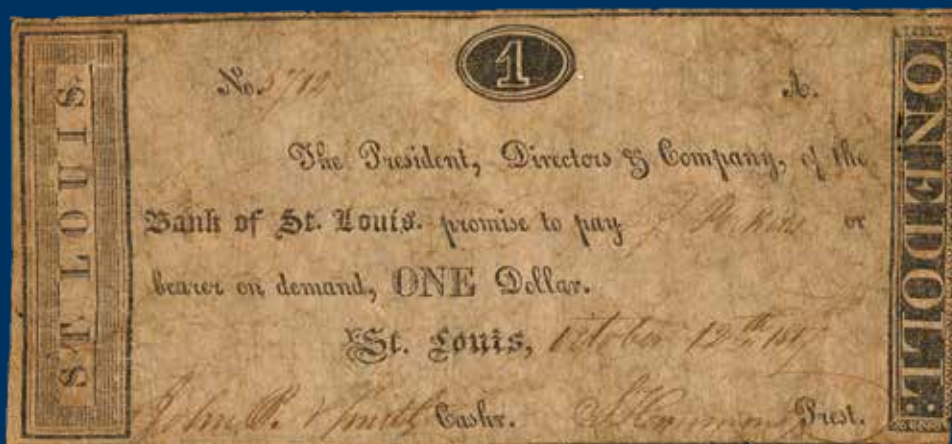 ST LOUIS.
1
No. A.
The President, Directors & Company, of the
Bank of St. Louis. promise to pay or
bearer on demand, ONE Dollar.
St. Louis, October 12th
John B. Smith Cashr. Prest.